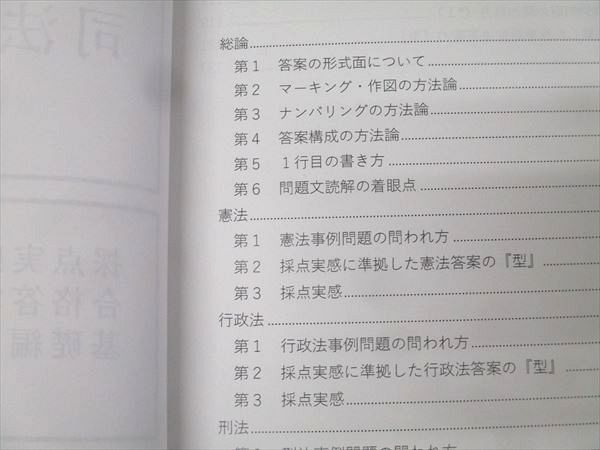 総論
第1 答案の形式面について
第2 マーキング・作図の方法論
第3 ナンバリングの方法論
第4 答案構成の方法論
第5 1行目の書き方
第6 問題文読解の着眼点
憲法
第1 憲法事例問題の問われ方
第2 採点実感に準拠した憲法答案の『型』
第3 採点実感
行政法
第1 行政法事例問題の問われ方
第2 採点実感に準拠した行政法答案の『型』
第3 採点実感
刑法